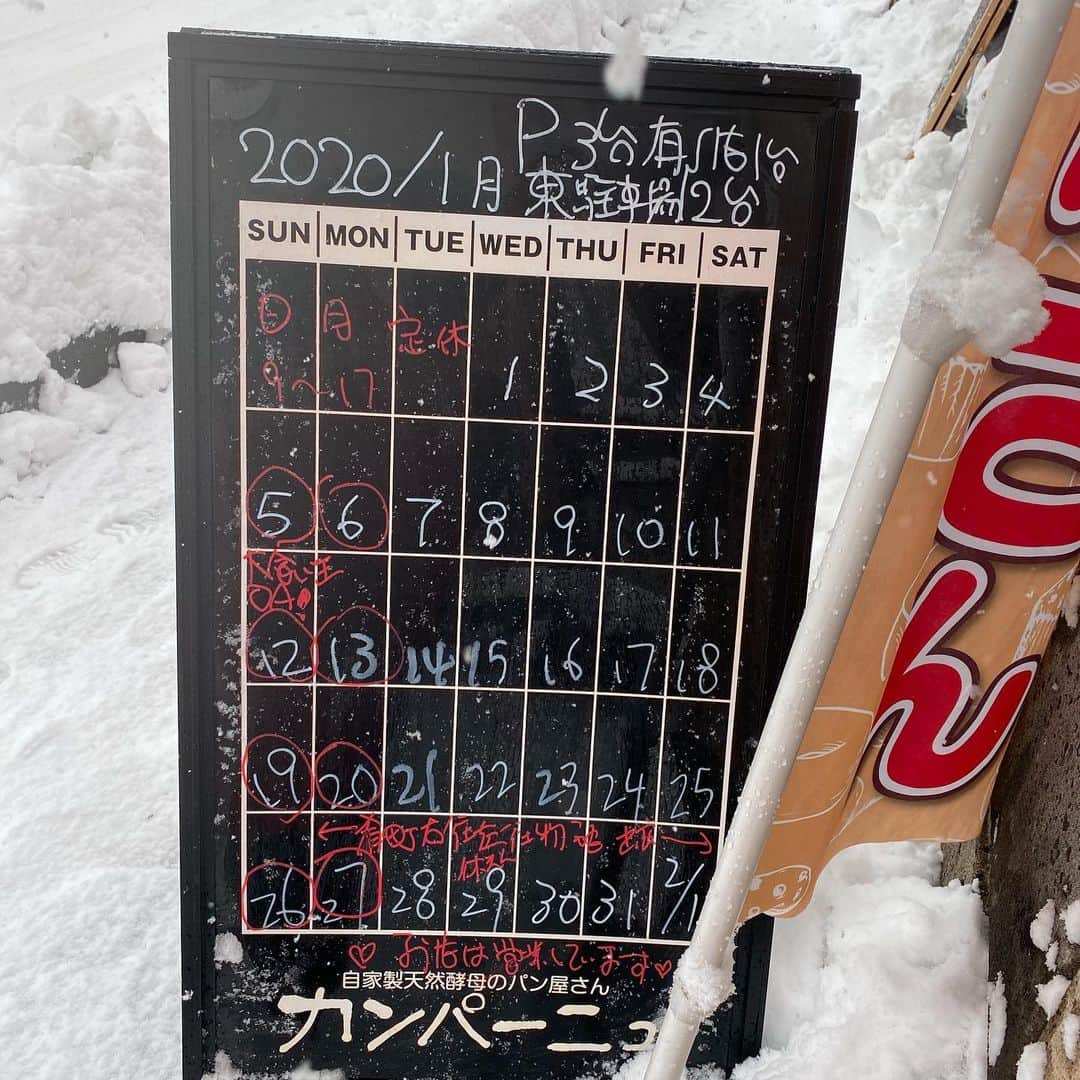 2020/1月
P 3台有
東駐車場2台
SUN MON TUE WED THU FRI SAT
日 月 定休
9~17
1 2 3 4
5 6 7 8 9 10 11
12 13 14 15 16 17 18
19 20 21 22 23 24 25
26 27 28 29 30 31 2/1
♡お店は営業しています♡
自家製天然酵母のパン屋さん
カンパーニュ